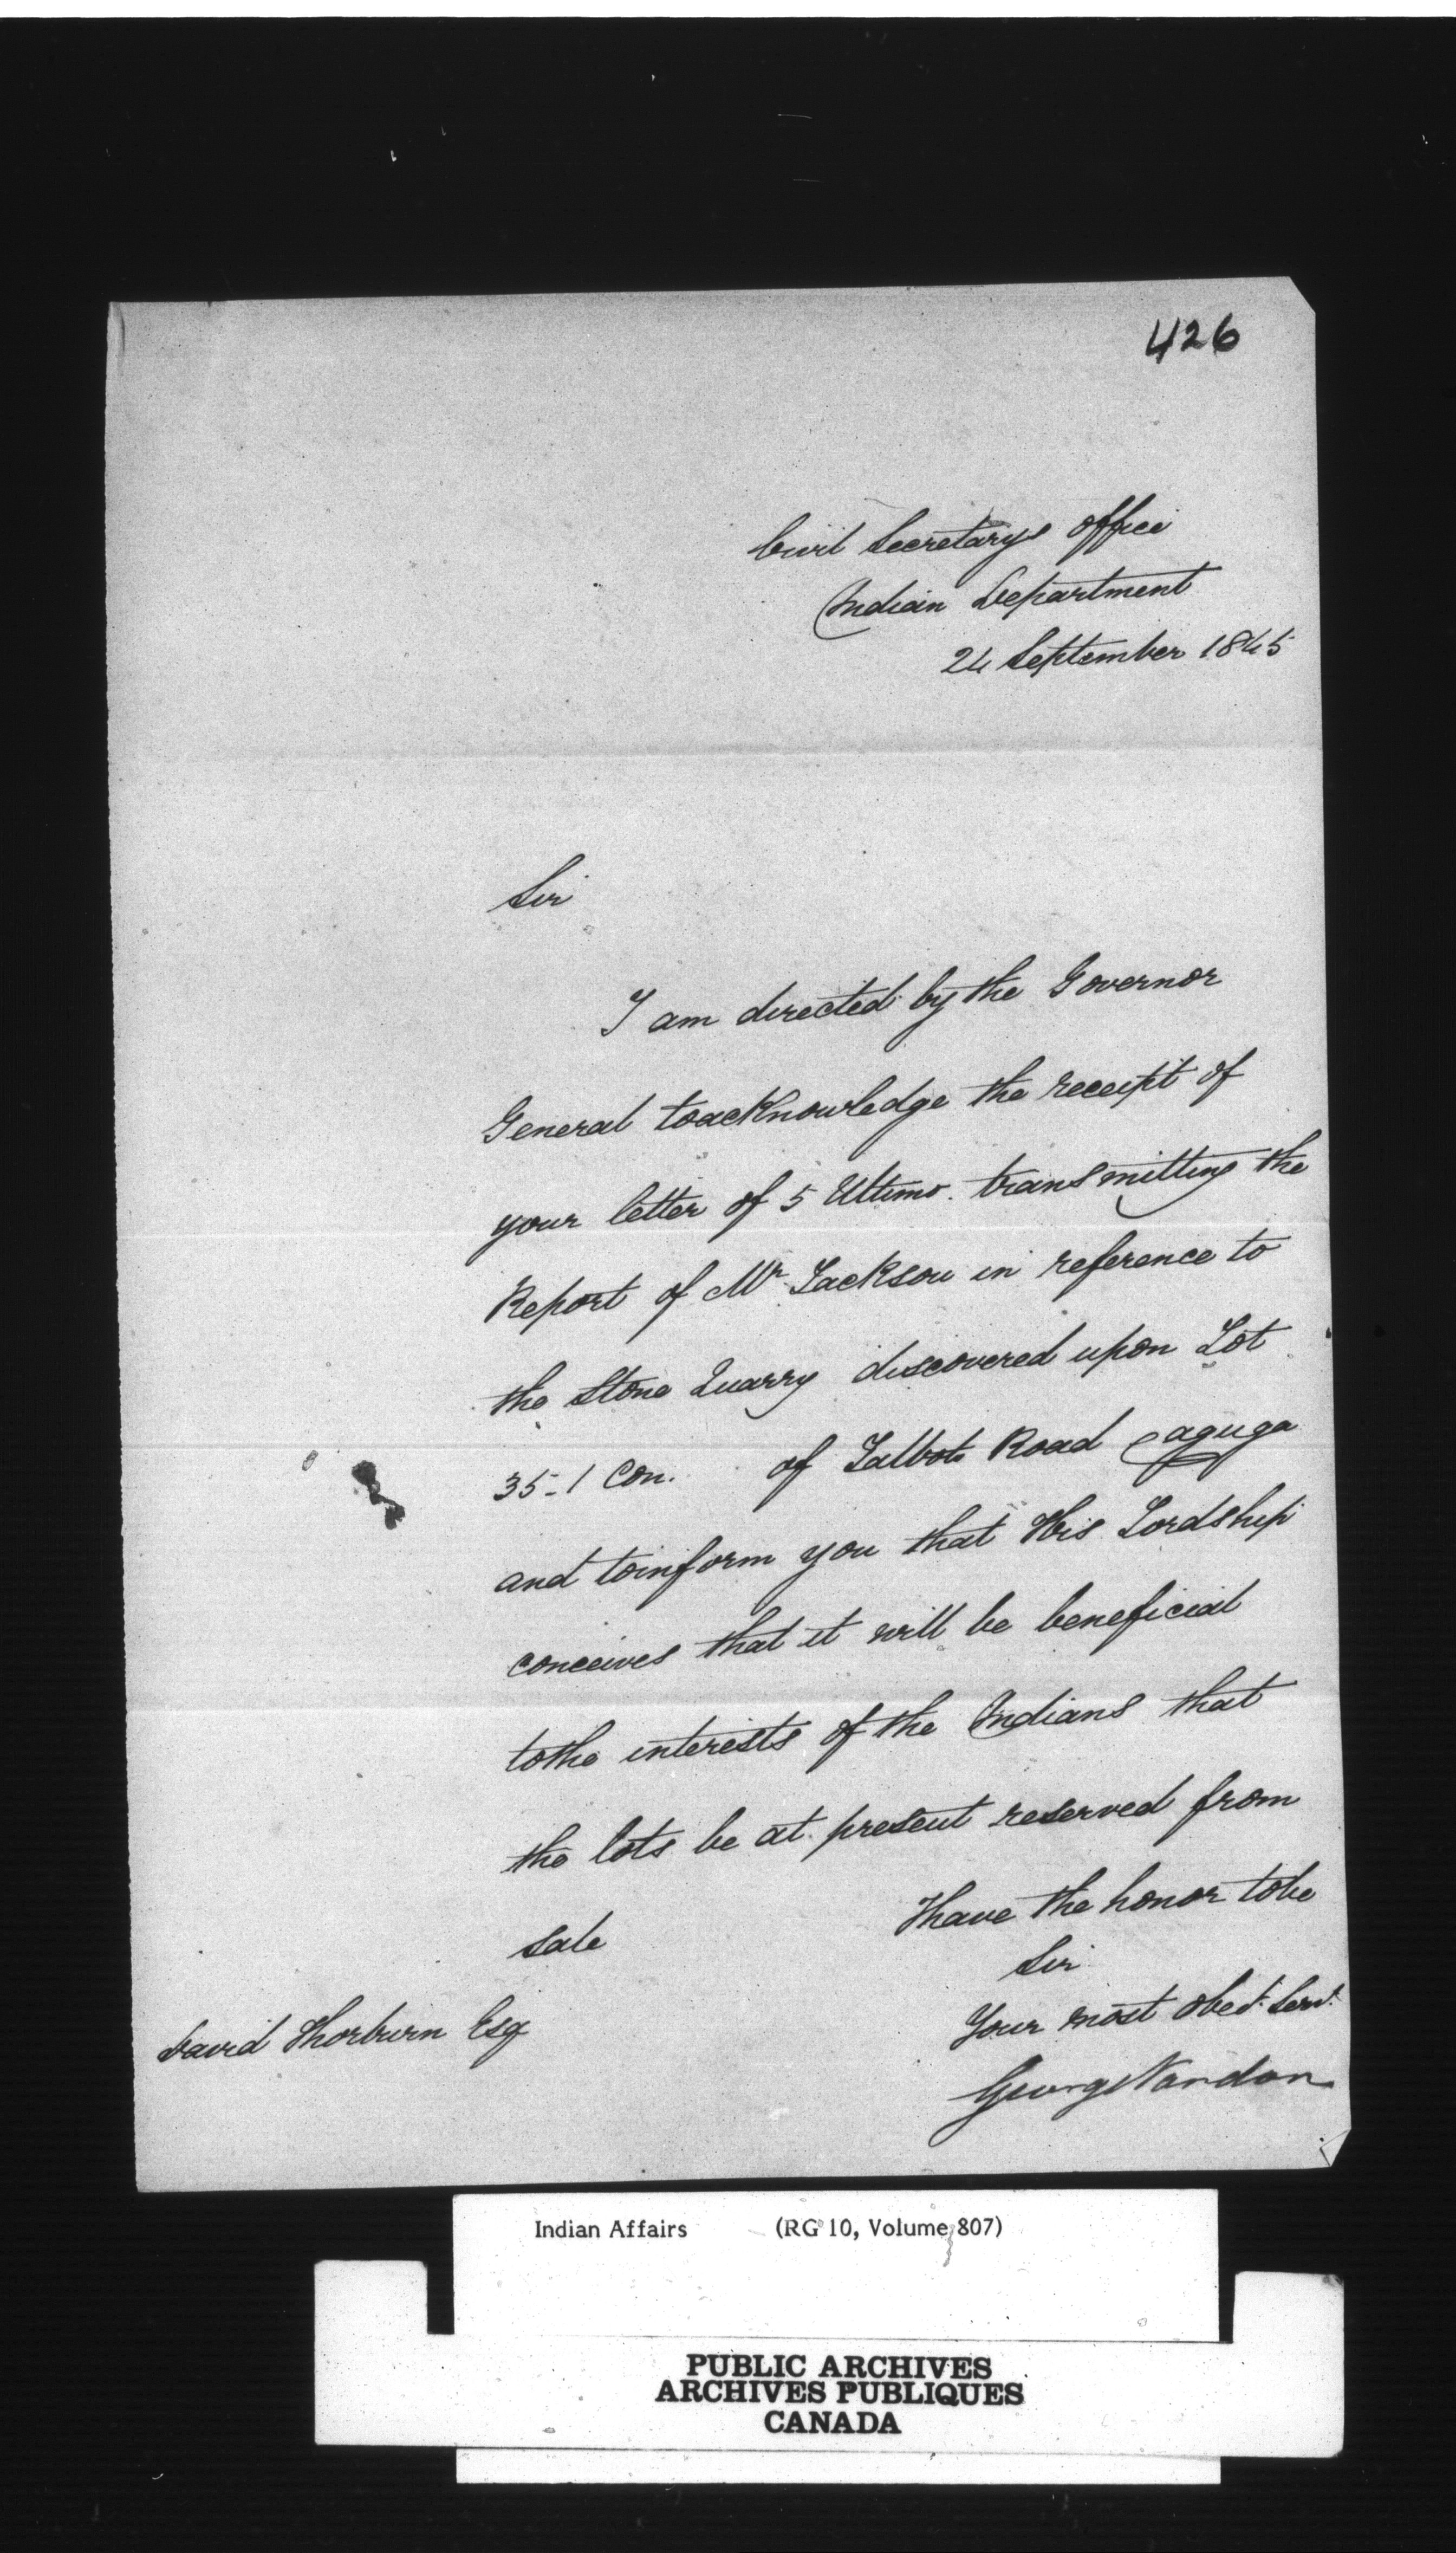 426
Civil Secretarys Office
Indian Department
24 September 1845
Sir
I am directed by the Governor
General to acknowledge the receipt of
your letter of 5 Ultimo. transmitting the
Report of Mr Jackson in reference to
the Stone Quarry discovered upon Lot
35-1 Con. of Talbots Road Cayuga
and to inform you that His Lordship
conceives that it will be beneficial
to the interests of the Indians that
the lots be at present reserved from
sale
I have the honor to be
Sir
Your most obedt Servt
George Vardon
David Thorburn Esq
Indian Affairs (RG 10, Volume 807)
PUBLIC ARCHIVES
ARCHIVES PUBLIQUES
CANADA